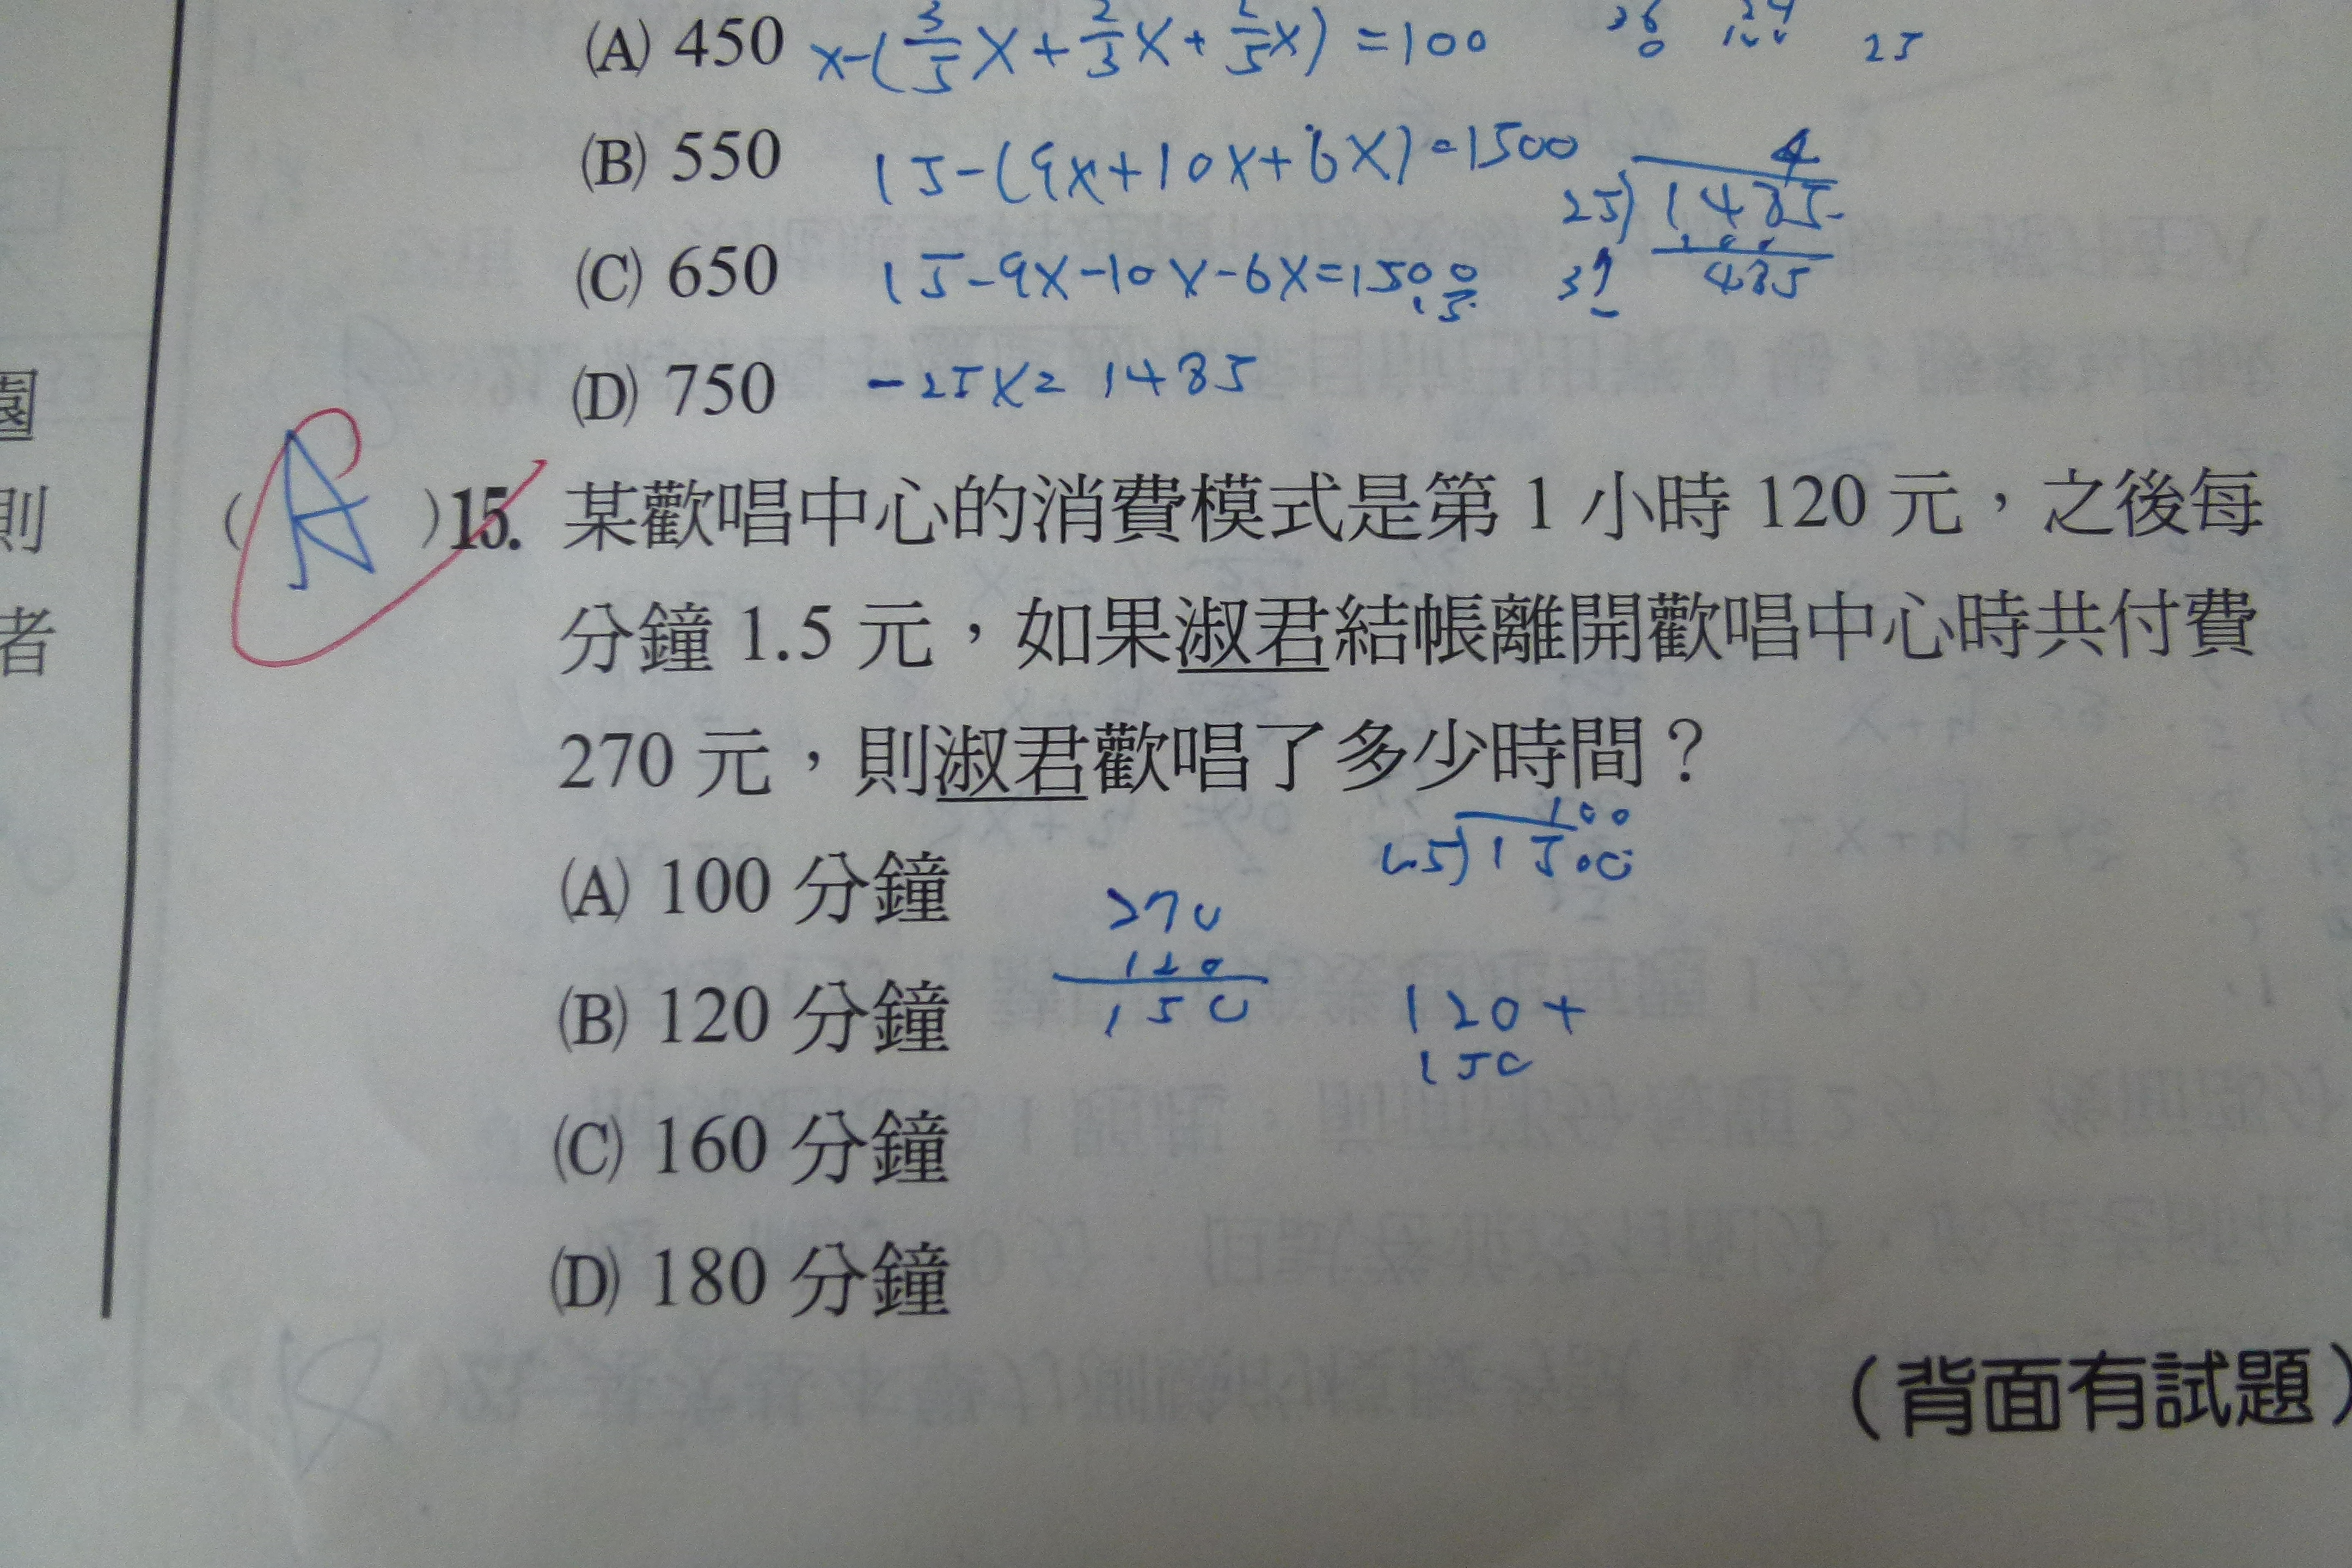 (A) 450 x-(3/5x+2/3x+2/5x)=100
25
(B) 550 15-(9x+10x+6x)=1500
4
25)1485
100
485
(C) 650 15-9x-10x-6x=1500
15
(D) 750 -25x=1485
園
則
者
(A)15. 某歡唱中心的消費模式是第 1 小時 120 元，之後每
分鐘 1.5 元，如果淑君結帳離開歡唱中心時共付費
270 元，則淑君歡唱了多少時間？
100
1.5)150.0
(A) 100 分鐘
270
120
150
(B) 120 分鐘
120+
150
(C) 160 分鐘
(D) 180 分鐘
（背面有試題）